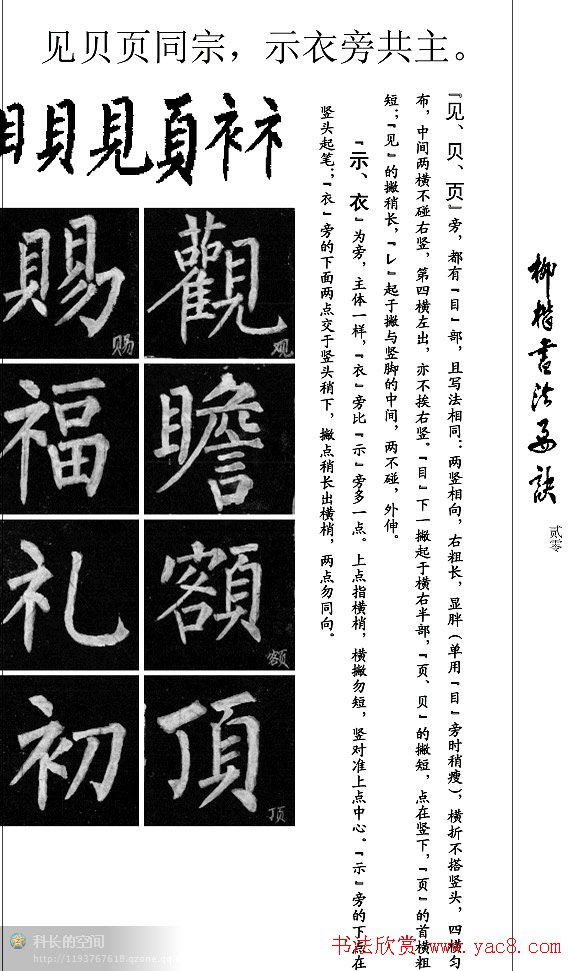 见贝页同宗，示衣旁共主。
柳楷书法要诀
贰零
『见、贝、页』旁，都有『目』部，且写法相同：两竖相向，右粗长，显胖（单用『目』旁时稍瘦），横折不搭竖头，四横匀
布，中间两横不碰右竖，第四横左出，亦不挨右竖。『目』下一撇起于横右半部，『页、贝』的撇短，点在竖下，『页』的首横粗
短；『见』的撇稍长，『乚』起于撇与竖脚的中间，两不碰，外伸。
『示、衣』为旁，主体一样，『衣』旁比『示』旁多一点。上点指横梢，横撇勿短，竖对准上点中心。『示』旁的下点在
竖头起笔；『衣』旁的下面两点交于竖头稍下，撇点稍长出横梢，两点勿同向。
目貝見頁衤礻
觀 观
賜 赐
瞻
福
額 额
礼
頂 顶
初
科长的空间
http://1193767618.qzone.qq.c
书法欣赏 www.yac8.com